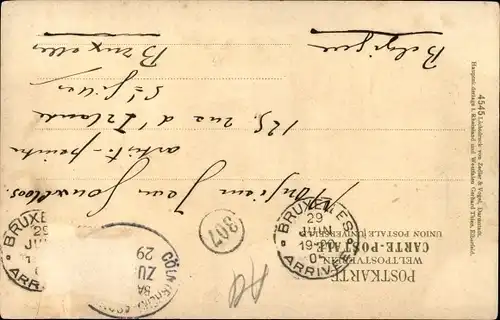 POSTKARTE
WELTPOSTVEREIN
CARTE-POSTALE
UNION POSTALE UNIVERSELLE
Monsieur Jean Gouweloos
artiste-peintre
125, rue d'Irlande
St Gilles
Bruxelles
Belgique
BRUXELLES
29
JUIN
19-20
ARRIVÉE
BRUXE
29
ARRI
307
29
4545 Lichtdruck von Zedler & Vogel, Darmstadt.
Hauptniederlage f. Rheinland und Westfalen Gerhard Thien, Elberfeld.